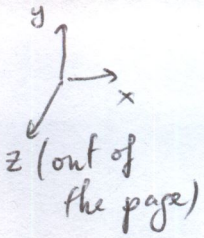 y
x
z (out of
the page)